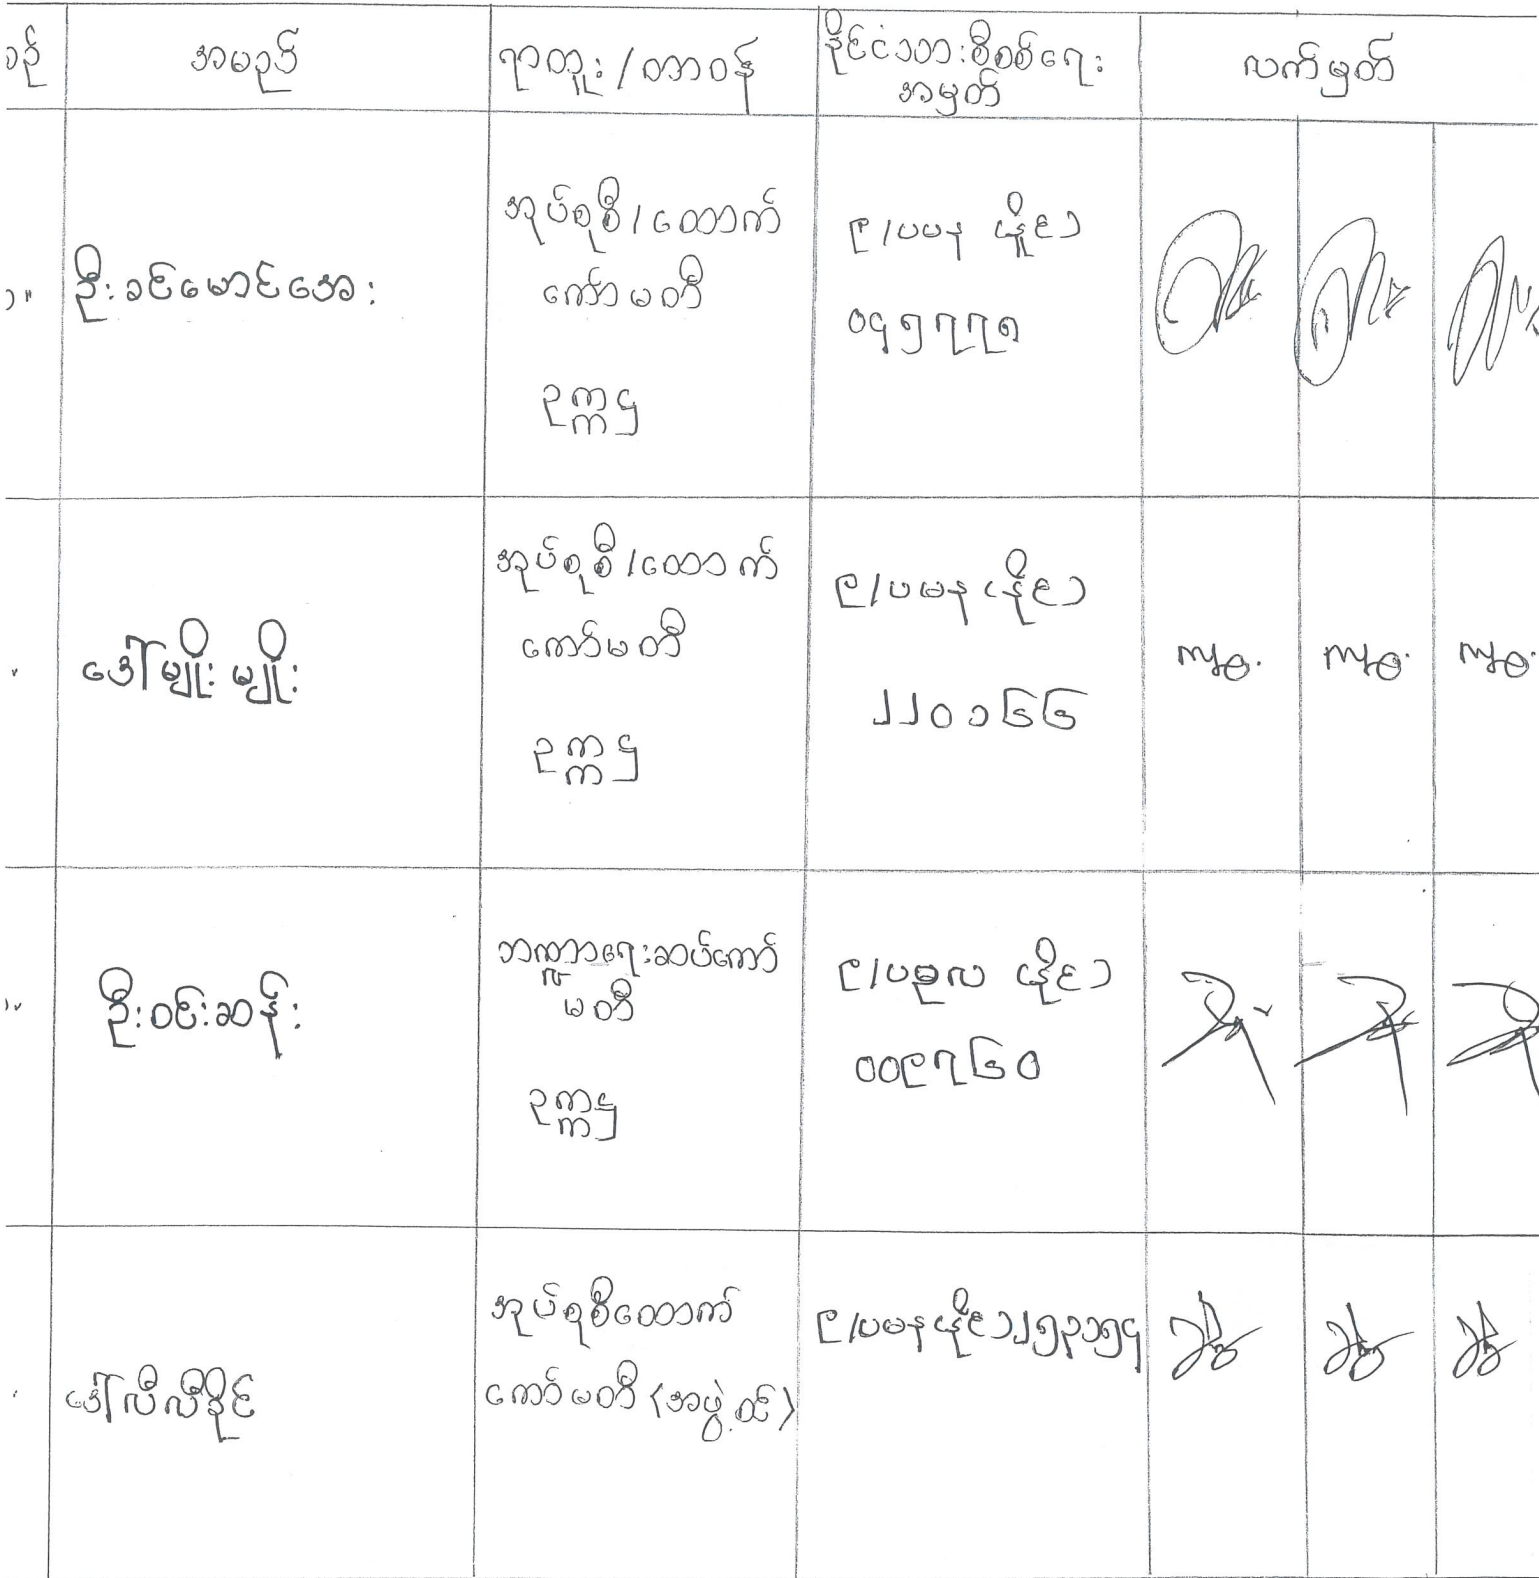 စဉ်
အမည်
ရာထူး/တာဝန်
နိုင်ငံသားစိစစ်ရေး
အမှတ်
လက်မှတ်
ဦးခင်မောင်အေး
အုပ်စုစီ/ထောက်
ကော်မတီ
ဥက္ကဌ
၉/ပမန (နိုင်)
၀၄၅၇၇၈
ဒေါ်မျိုးမျိုး
အုပ်စုစီ/ထောက်
ကော်မတီ
ဥက္ကဌ
၉/ပမန (နိုင်)
၂၂၀၁၆၆
ဦးဝင်းဆန်း
ဘဏ္ဍာရေးဆပ်ကော်
မတီ
ဥက္ကဌ
၉/ပမလ (နိုင်)
၀၀၉၇၆၀
ဒေါ်လီလီခိုင်
အုပ်စုစီထောက်
ကော်မတီ (အဖွဲ့ဝင်)
၉/ပမန(နိုင်)၂၅၃၁၅၄